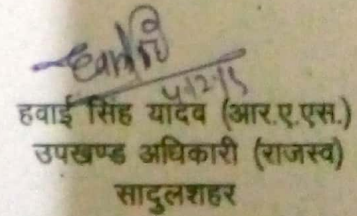 4/12/15
हवाई सिंह यादव (आर.ए.एस.)
उपखण्ड अधिकारी (राजस्व)
सादुलशहर